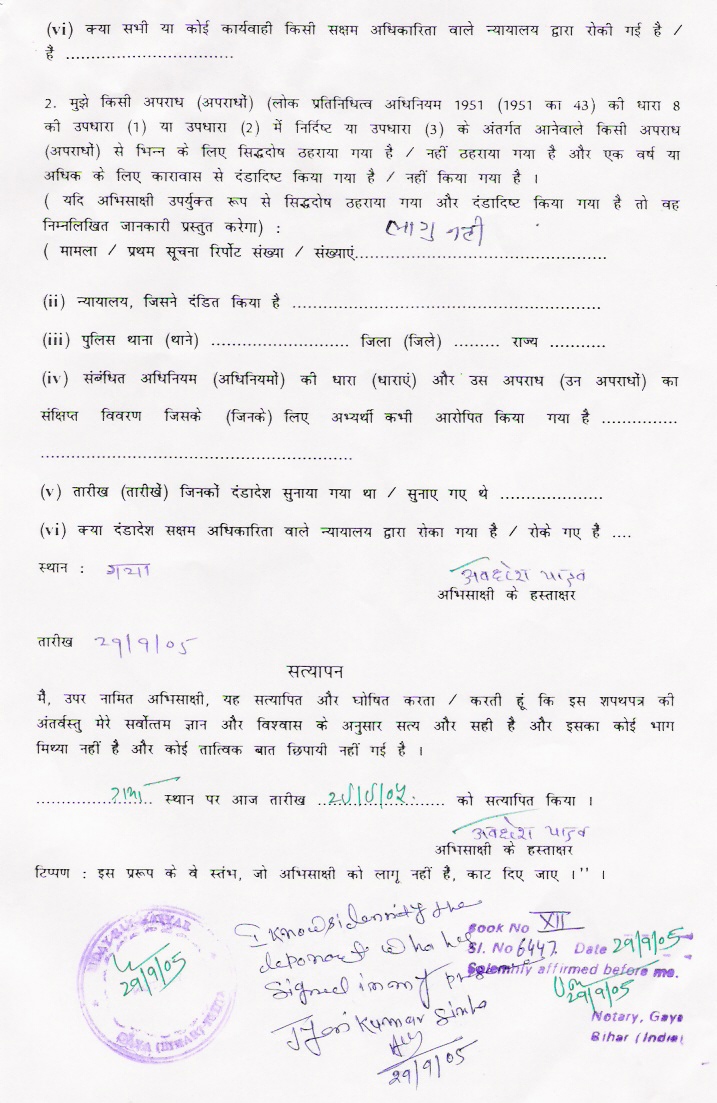 (vi) क्या सभी या कोई कार्यवाही किसी सक्षम अधिकारिता वाले न्यायालय द्वारा रोकी गई है /
है ..................................
2. मुझे किसी अपराध (अपराधों) (लोक प्रतिनिधित्व अधिनियम 1951 (1951 का 43) की धारा 8
की उपधारा (1) या उपधारा (2) में निर्दिष्ट या उपधारा (3) के अंतर्गत आनेवाले किसी अपराध
(अपराधों) से भिन्न के लिए सिद्धदोष ठहराया गया है / नहीं ठहराया गया है और एक वर्ष या
अधिक के लिए कारावास से दंडादिष्ट किया गया है / नहीं किया गया है ।
( यदि अभिसाक्षी उपर्युक्त रूप से सिद्धदोष ठहराया गया और दंडादिष्ट किया गया है तो वह
निम्नलिखित जानकारी प्रस्तुत करेगा) : लागु नही
( मामला / प्रथम सूचना रिर्पोट संख्या / संख्याएं...................................................
(ii) न्यायालय, जिसने दंडित किया है ..............................................................
(iii) पुलिस थाना (थाने) ............................ जिला (जिले) ......... राज्य ...........
(iv) संबंधित अधिनियम (अधिनियमों) की धारा (धाराएं) और उस अपराध (उन अपराधों) का
संक्षिप्त विवरण जिसके (जिनके) लिए अभ्यर्थी कभी आरोपित किया गया है ...............
...............................................................
(v) तारीख (तारीखें) जिनकों दंडादेश सुनाया गया था / सुनाए गए थे .....................
(vi) क्या दंडादेश सक्षम अधिकारिता वाले न्यायालय द्वारा रोका गया है / रोके गए है ....
स्थान : गया
अवधेश यादव
अभिसाक्षी के हस्ताक्षर
तारीख 29/9/05
सत्यापन
मै, उपर नामित अभिसाक्षी, यह सत्यापित और घोषित करता / करती हूं कि इस शपथपत्र की
अंतर्वस्तु मेरे सर्वोत्तम ज्ञान और विश्वास के अनुसार सत्य और सही है और इसका कोई भाग
मिथ्या नहीं है और कोई तात्विक बात छिपायी नहीं गई है ।
........................ स्थान पर आज तारीख .......................... को सत्यापित किया ।
अवधेश यादव
अभिसाक्षी के हस्ताक्षर
टिप्पण : इस प्ररूप के वे स्तंभ, जो अभिसाक्षी को लागू नहीं है, काट दिए जाए ।'' ।
29/9/05
I know & identify the
deponent who has
signed in my
Kumar Sinha
29/9/05
Book No XII
Sl. No 6447. Date 29/9/05
Solemnly affirmed before me.
29/9/05
Notary, Gaya
Bihar (India)